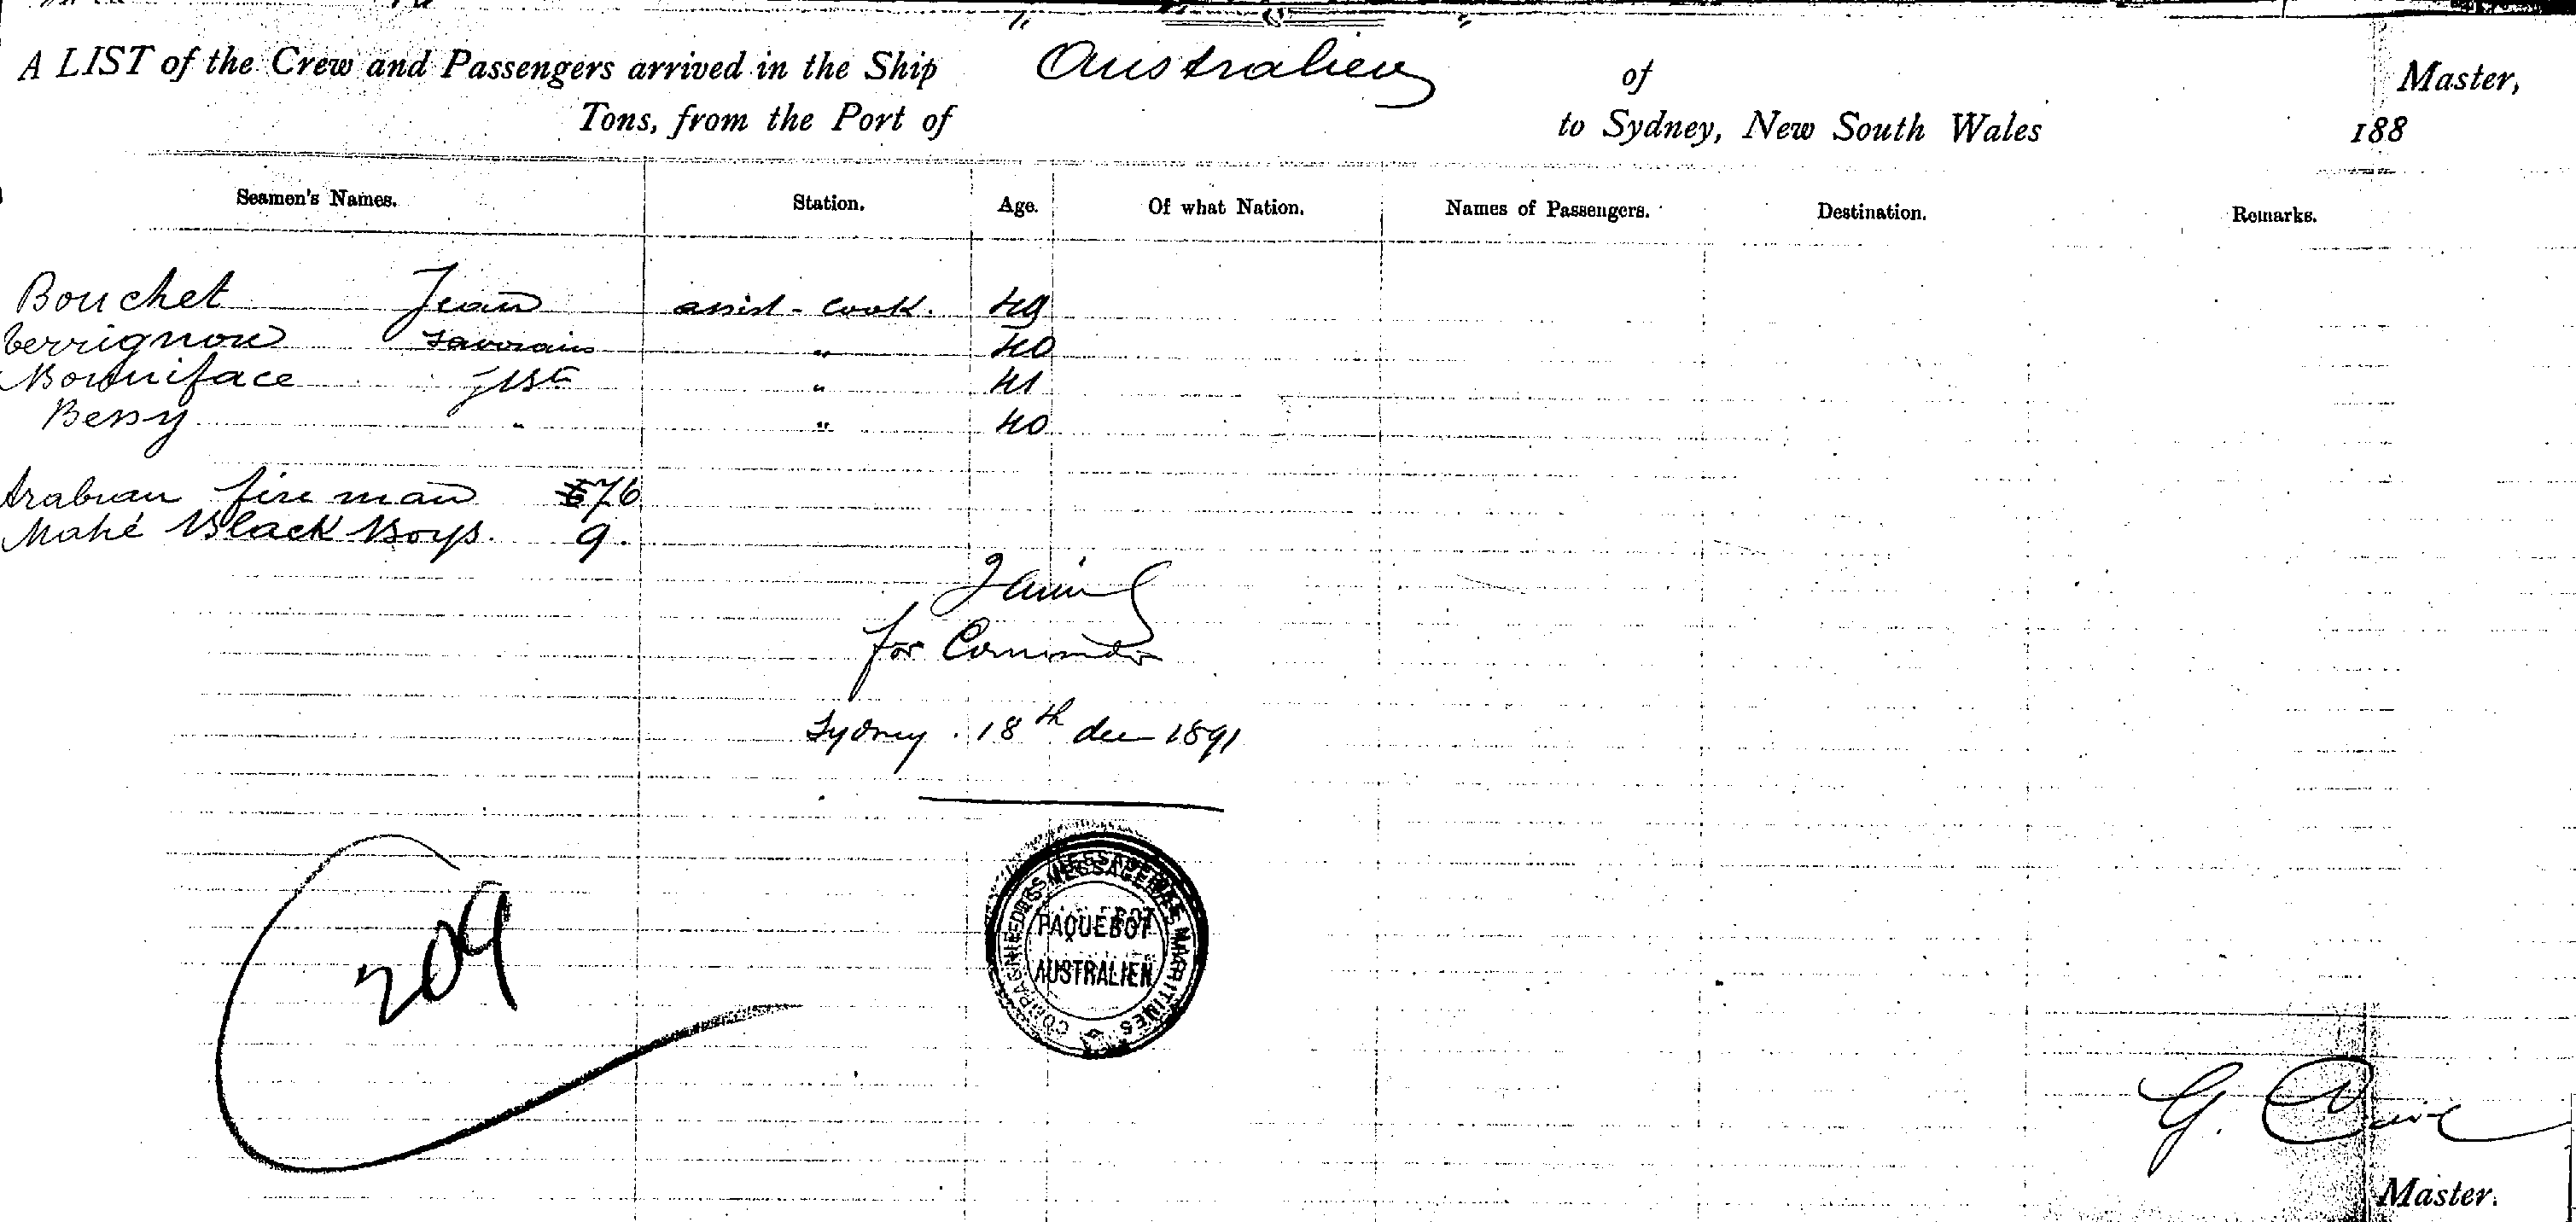 A LIST of the Crew and Passengers arrived in the Ship Australien of Master,
Tons, from the Port of to Sydney, New South Wales 188
Seamen's Names. Station. Age. Of what Nation. Names of Passengers. Destination. Remarks.
Bouchet Jean assist - cook. 49
Verrignon " 40
Bonniface JBte " 41
Bessy " " 40
Arabian fire man 76
Mahé Black Boys. 9.
for
Sydney. 18th dec 1891
COMPAGNIE DES MESSAGERIES MARITIMES
PAQUEBOT
AUSTRALIEN
209
G.
Master.